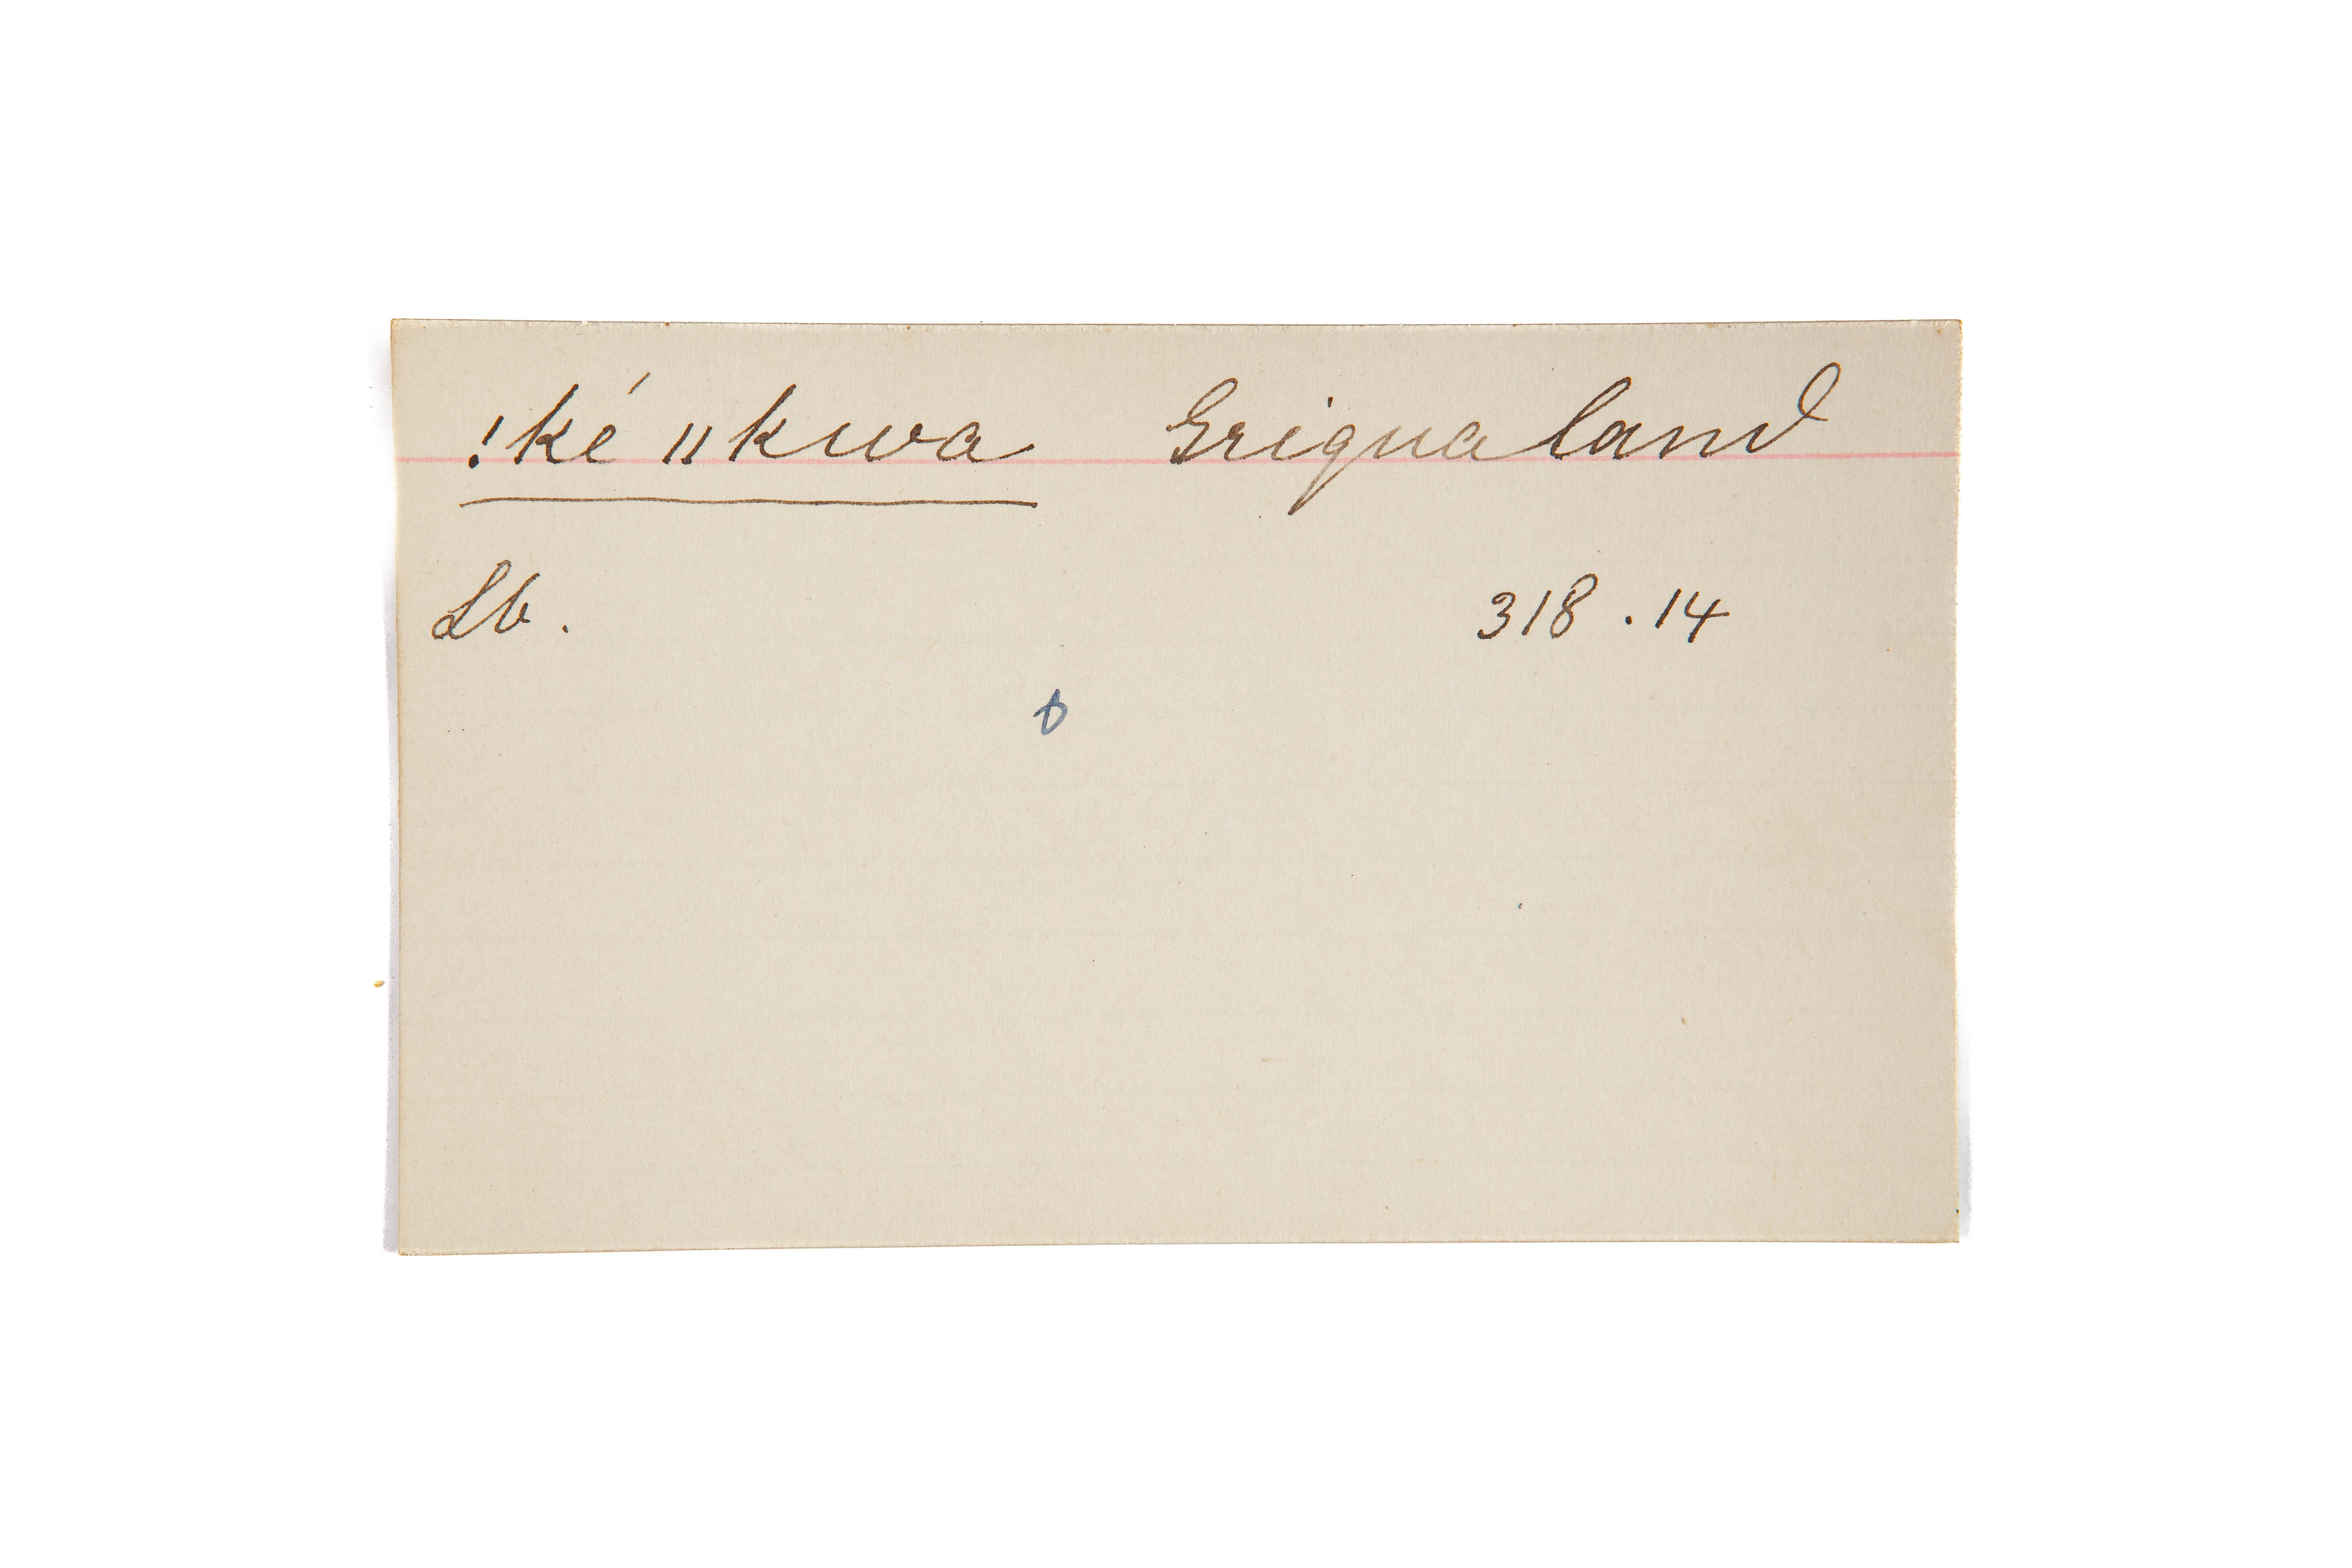 !ké ǁkwa Griqualand
Lb. 318 . 14